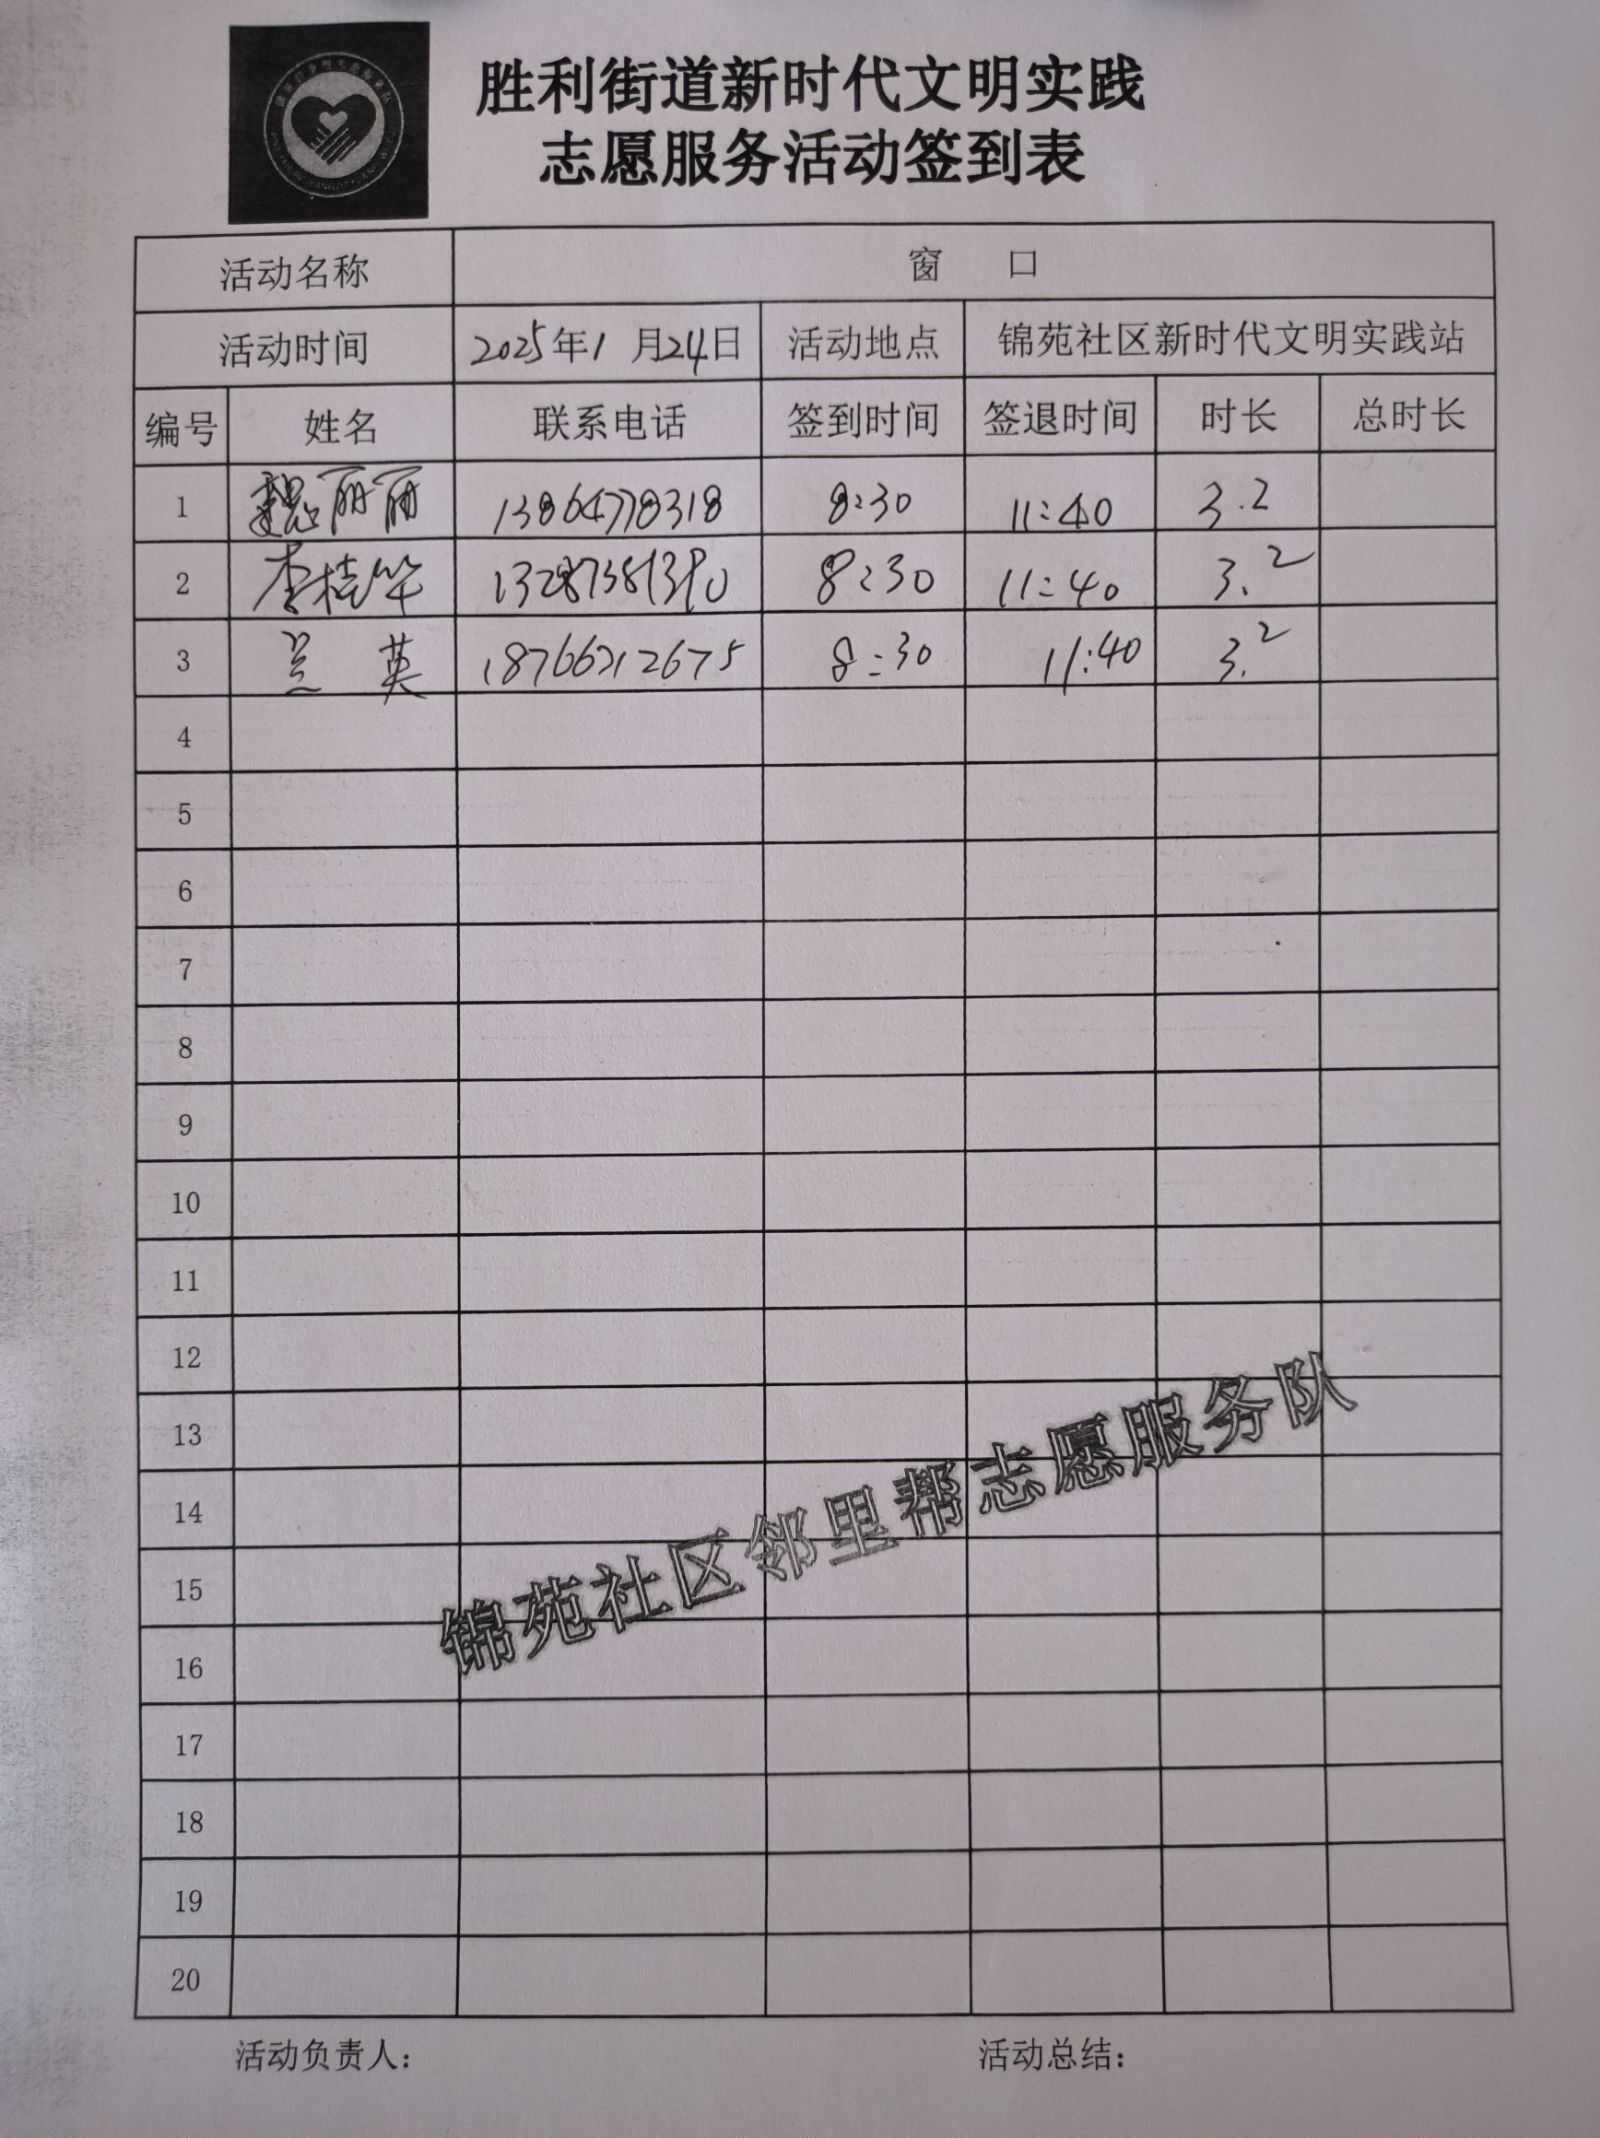 胜利街道新时代文明实践
志愿服务活动签到表
活动名称 窗 口
活动时间 2025年1月24日 活动地点 锦苑社区新时代文明实践站
编号 姓名 联系电话 签到时间 签退时间 时长 总时长
1 魏丽丽 13864778318 8:30 11:40 3.2
2 李桂华 13287381390 8:30 11:40 3.2
3 兰 英 18766212675 8:30 11:40 3.2
4
5
6
7
8
9
10
11
12
13
14
15
16
17
18
19
20
锦苑社区邻里帮志愿服务队
活动负责人: 活动总结: